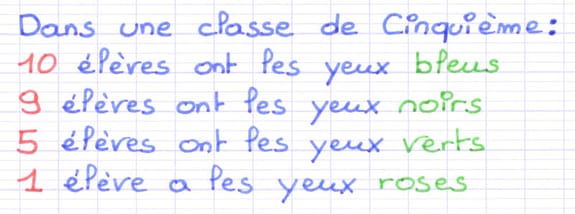 Dans une classe de Cinquième:
10 élèves ont les yeux bleus
9 élèves ont les yeux noirs
5 élèves ont les yeux verts
1 élève a les yeux roses